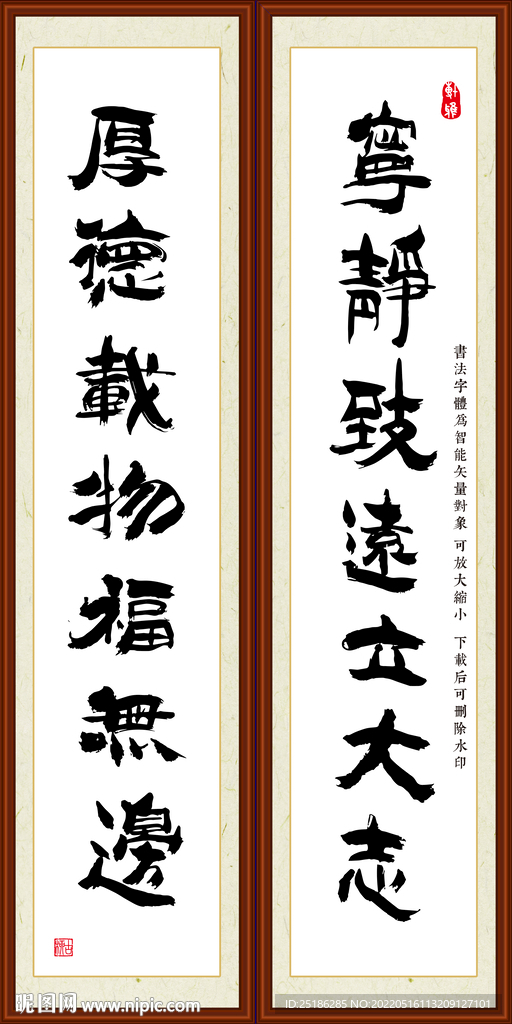 寧靜致遠立大志
書法字體為智能矢量對象 可放大縮小 下載后可刪除水印
厚德載物福無邊
昵图网 www.nipic.com
ID:25186285 NO:20220516113209127101